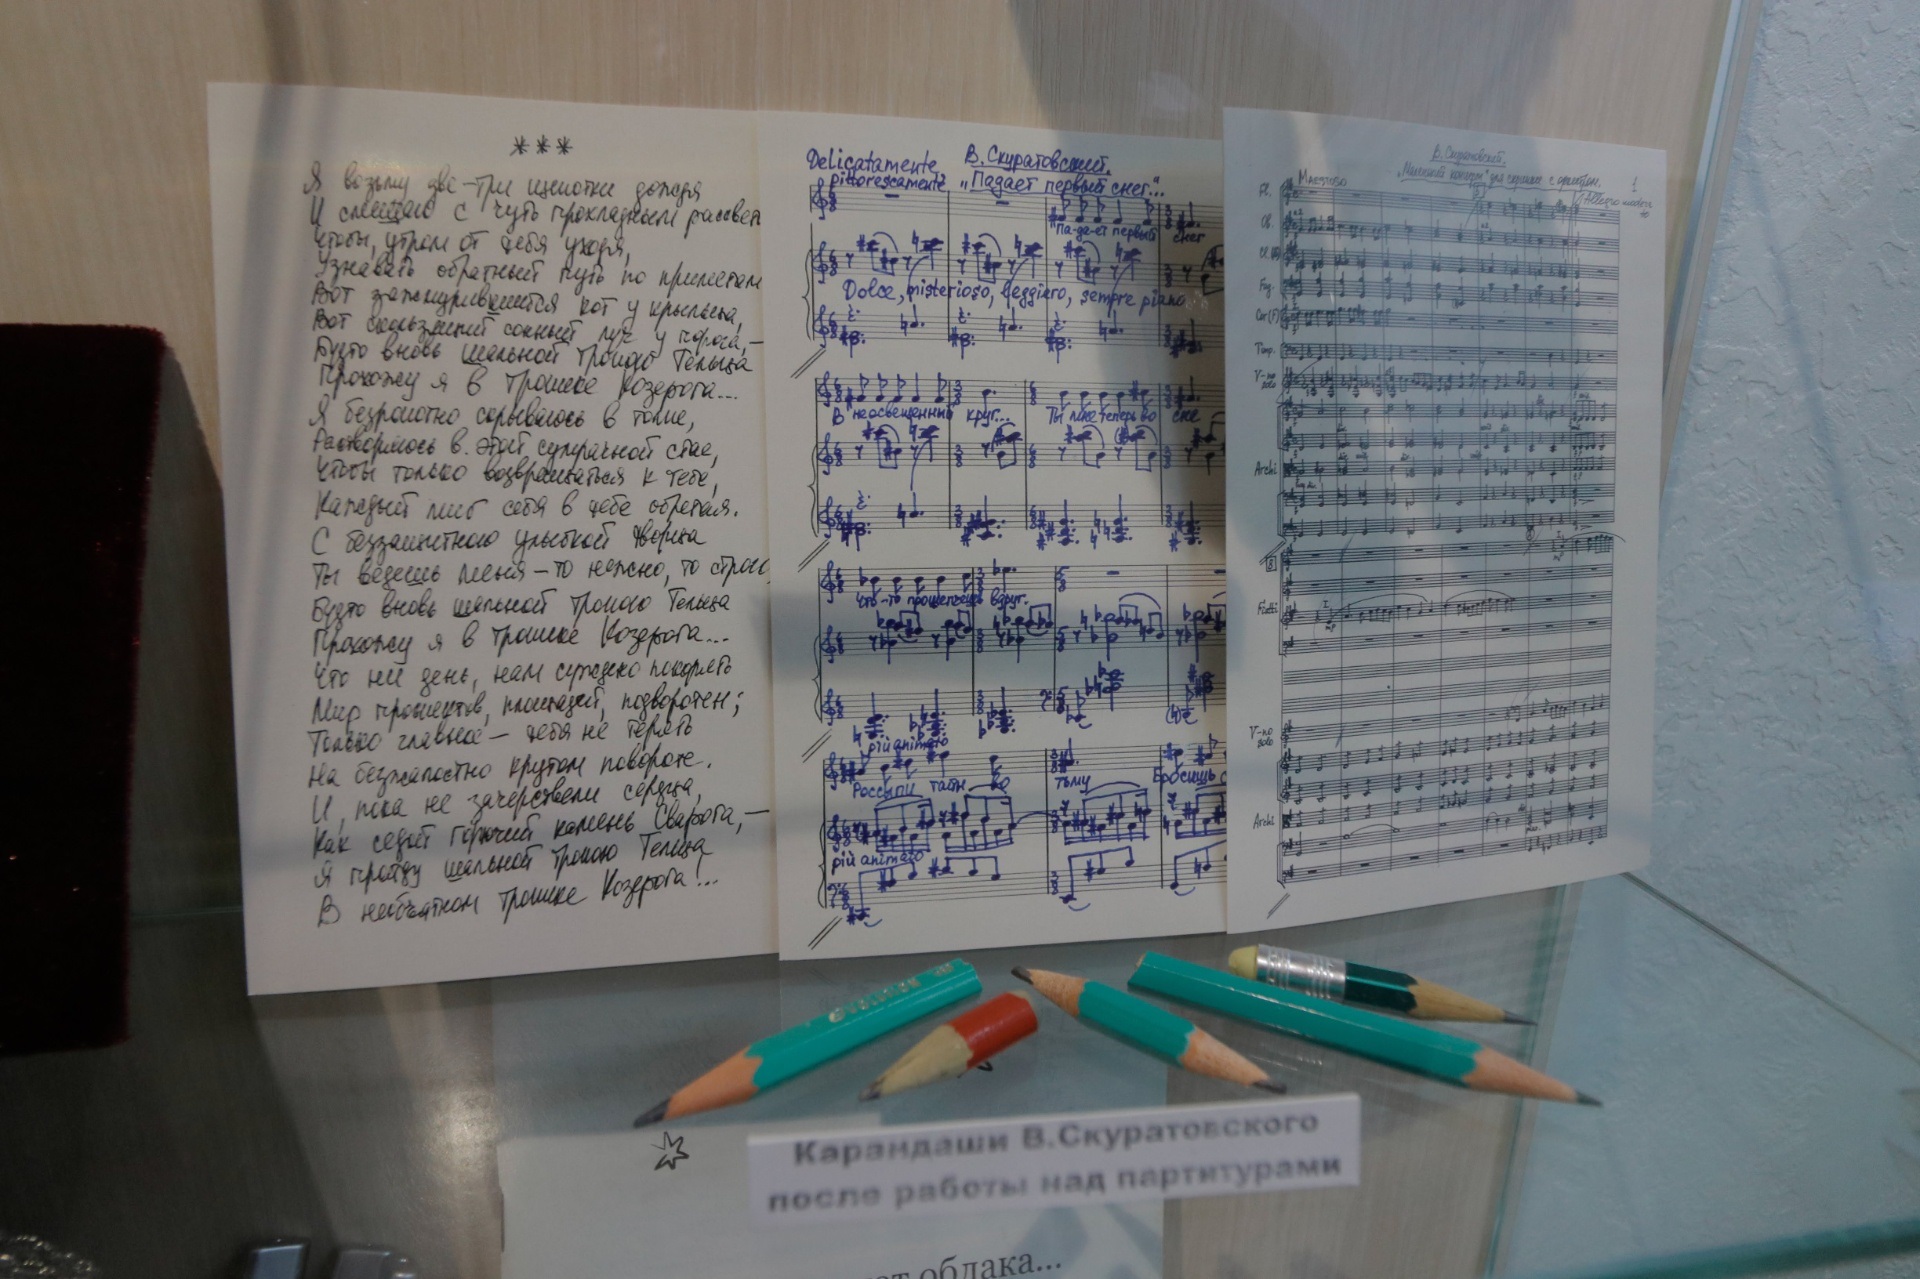 ***
Я возьму две-три щепотки дождя
И смешаю с чуть прохладным рассвет
Чтобы, утром от тебя уходя,
Узнавать обратный путь по приметам
Вот зажмурившийся кот у крыльца,
Вот скользящий сонный луч у порога,—
Будто вновь шальной тропою Тельца
Прохожу я в трошке Козерога...
Я безропотно сорываюсь в толпе,
Растворяюсь в этой сумрачной стае,
Чтобы только возвращаться к тебе,
Каждый миг себя в тебе обретая.
С беззащитною улыбкой
Ты ведешь меня—то нежно, то строго,
Будто вновь шальной тропою Тельца
Прохожу я в трошке Козерога...
Что ни день, нам суждено покорять
Мир проспектов, площадей, подворотен;
Только главное— тебя не терять
На безжалостно крутом повороте.
И, пока не зачерствели сердца,
Как седой горючий камень Сварога,—
Я пройду шальной тропою Тельца
В необъятном трошке Козерога!...
Delicatamente
pittorescamente
В.Скуратовский.
„Падает первый снег..."
"Па-да-ет первый снег
Dolce, misterioso, leggiero, sempre piano
В неосвещенный круг... Ты мне теперь во сне
Что-то прошепчешь вдруг.
più animato
Россыпи тайн во тьму Бросишь
più animato
В. Скуратовский.
для скрипки с оркестром.
1
Maestoso
Allegro modera
to
Fl.
Ob.
Fag.
Cor (F)
Timp.
V-no
solo
Archi
8
Fiatti
V-no
solo
Archi
EVOLUTION
Карандаши В.Скуратовского
после работы над партитурами
от облака...